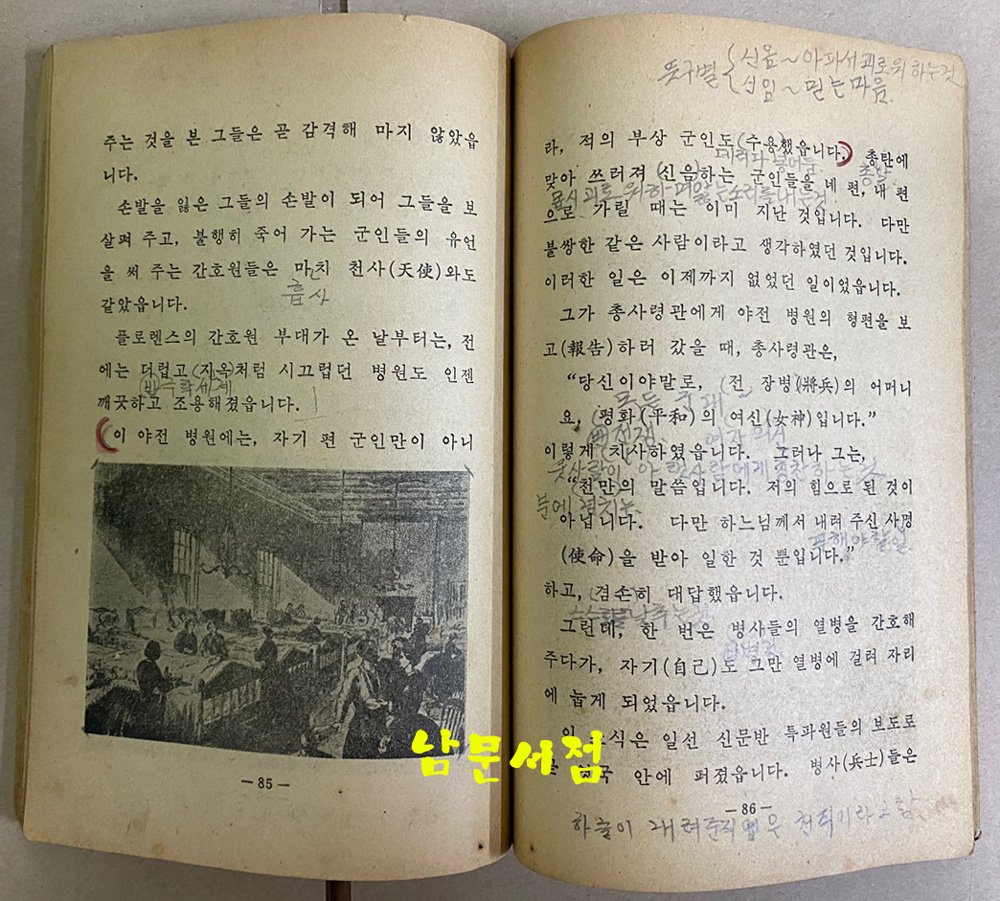 주는 것을 본 그들은 곧 감격해 마지 않았읍
니다.
손발을 잃은 그들의 손발이 되어 그들을 보
살펴 주고, 불행히 죽어 가는 군인들의 유언
을 써 주는 간호원들은 마치 천사(天使)와도
같았읍니다.
흡사
플로렌스의 간호원 부대가 온 날부터는, 전
에는 더럽고 지옥처럼 시끄럽던 병원도 인젠
깨끗하고 조용해졌읍니다.
이 야전 병원에는, 자기 편 군인만이 아니
— 85 —
뜻구별 신음~아파서 괴로워 하는것
신임~믿는마음.
라, 적의 부상 군인도 (수용)했읍니다. 총탄에
총알
맞아 쓰러져 (신음)하는 군인들을 네 편, 내 편
으로 가릴 때는 이미 지난 것입니다. 다만
불쌍한 같은 사람이라고 생각하였던 것입니다.
이러한 일은 이제까지 없었던 일이었읍니다.
그가 총사령관에게 야전 병원의 형편을 보
고(報告)하러 갔을 때, 총사령관은,
“당신이야말로, 전 장병(將兵)의 어머니
요, 평화(平和)의 여신(女神)입니다.”
이렇게 치사하였읍니다. 그러나 그는,
“천만의 말씀입니다. 저의 힘으로 된 것이
분에 넘치는
아닙니다. 다만 하느님께서 내려 주신 사명
(使命)을 받아 일한 것 뿐입니다.”
하고, 겸손히 대답했읍니다.
그런데, 한 번은 병사들의 열병을 간호해
주다가, 자기(自己)도 그만 열병에 걸려 자리
에 눕게 되었읍니다.
이 소식은 일선 신문반 특파원들의 보도로
안에 퍼졌읍니다. 병사(兵士)들은
— 86 —
하늘이 내려준직업은 천직이라고함
남문서점